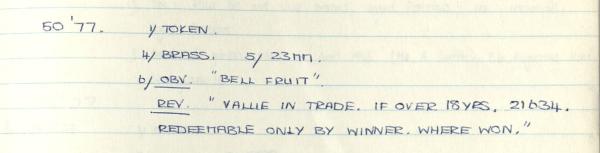 50 '77. 1/ TOKEN.
4/ BRASS. 5/ 23mm.
6/ OBV. "BELL FRUIT".
REV. "VALUE IN TRADE. IF OVER 18 YRS, 21634.
REDEEMABLE ONLY BY WINNER. WHERE WON."